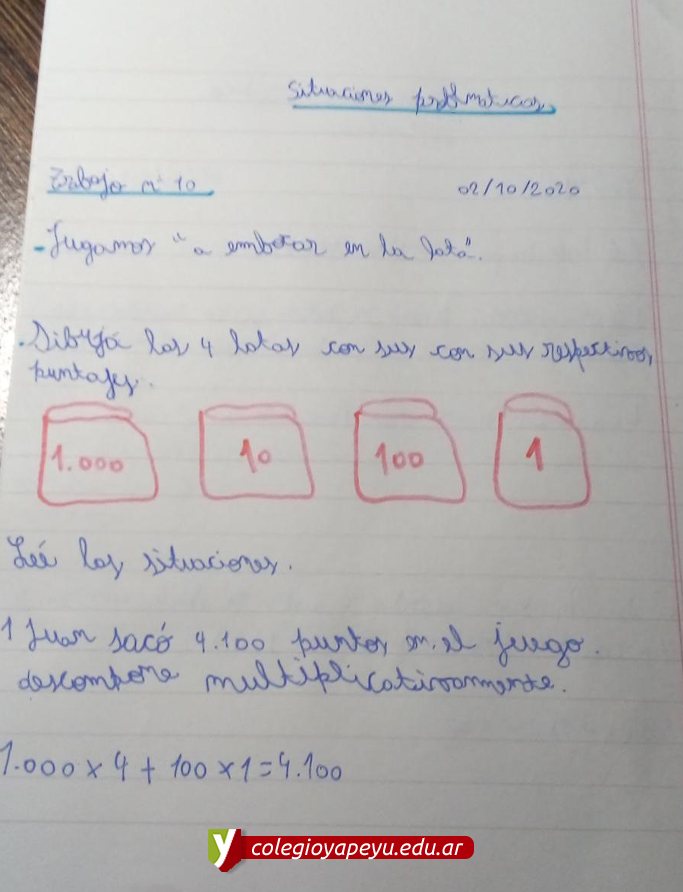 Situaciones problematicas
Trabajo n° 10 02/10/2020
- Jugamos "a embocar en la lata".
. Dibujá las 4 latas con sus con sus respectivos
puntajes.
1.000 10 100 1
Leé las situaciones.
1 Juan sacó 4.100 puntos en el juego.
descompone multiplicativamente.
1.000 x 4 + 100 x 1 = 4.100
colegioyapeyu.edu.ar